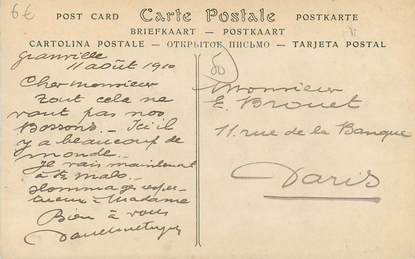 6€
POST CARD
Carte Postale
POSTKARTE
BRIEFKAART — POSTKAART
CARTOLINA POSTALE — ОТКРЫТОЕ ПИСЬМО — TARJETA POSTAL
Granville
11 août 1910
Cher Monsieur
Tout cela ne
vaut pas nos
Bossons. — Ici il
y a beaucoup de
monde. —
Je vais maintenant
à St Malo. —
Hommages respec-
tueux à Madame
Bien à vous
Monsieur
E. Brouet
11. rue de la Banque
Paris